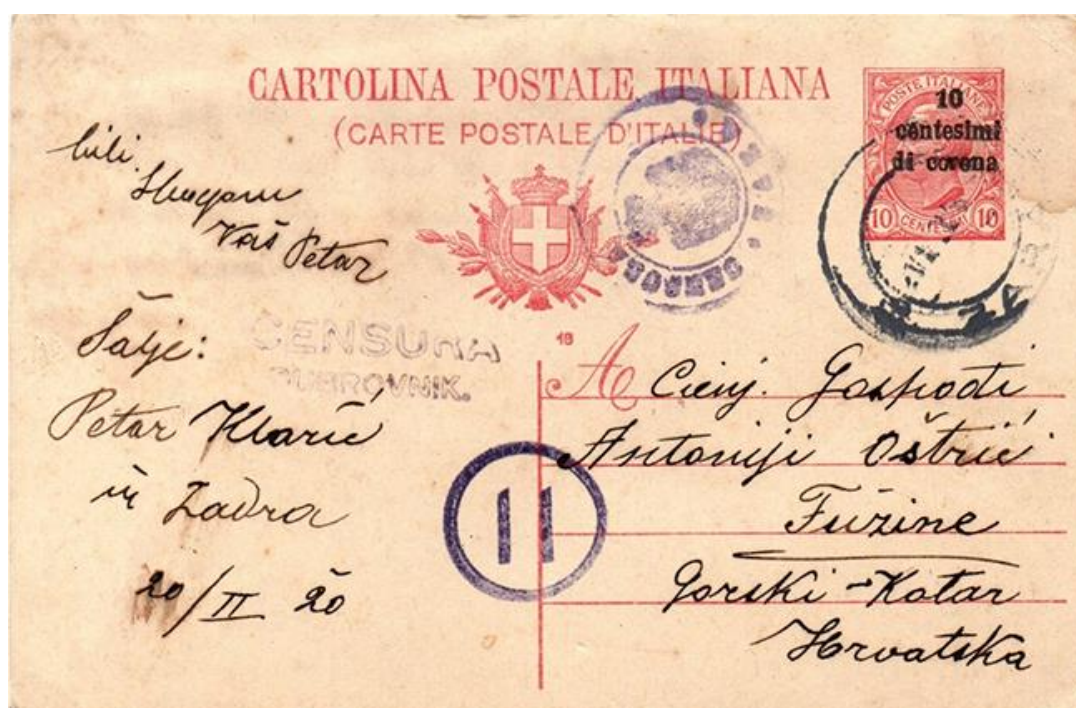 CARTOLINA POSTALE ITALIANA
(CARTE POSTALE D'ITALIE)
POSTE ITALIANE
10
centesimi
di corona
10 CENTESIMI 10
bili.
Vaš Petar
CENSURA
DUBROVNIK.
Šalje:
Petar Klarić
iz Zadra
20/II 20
11
18
A Cienj. Gospodi
Antoniji Oštrić
Fužine
Gorski-Kotar
Hrvatska